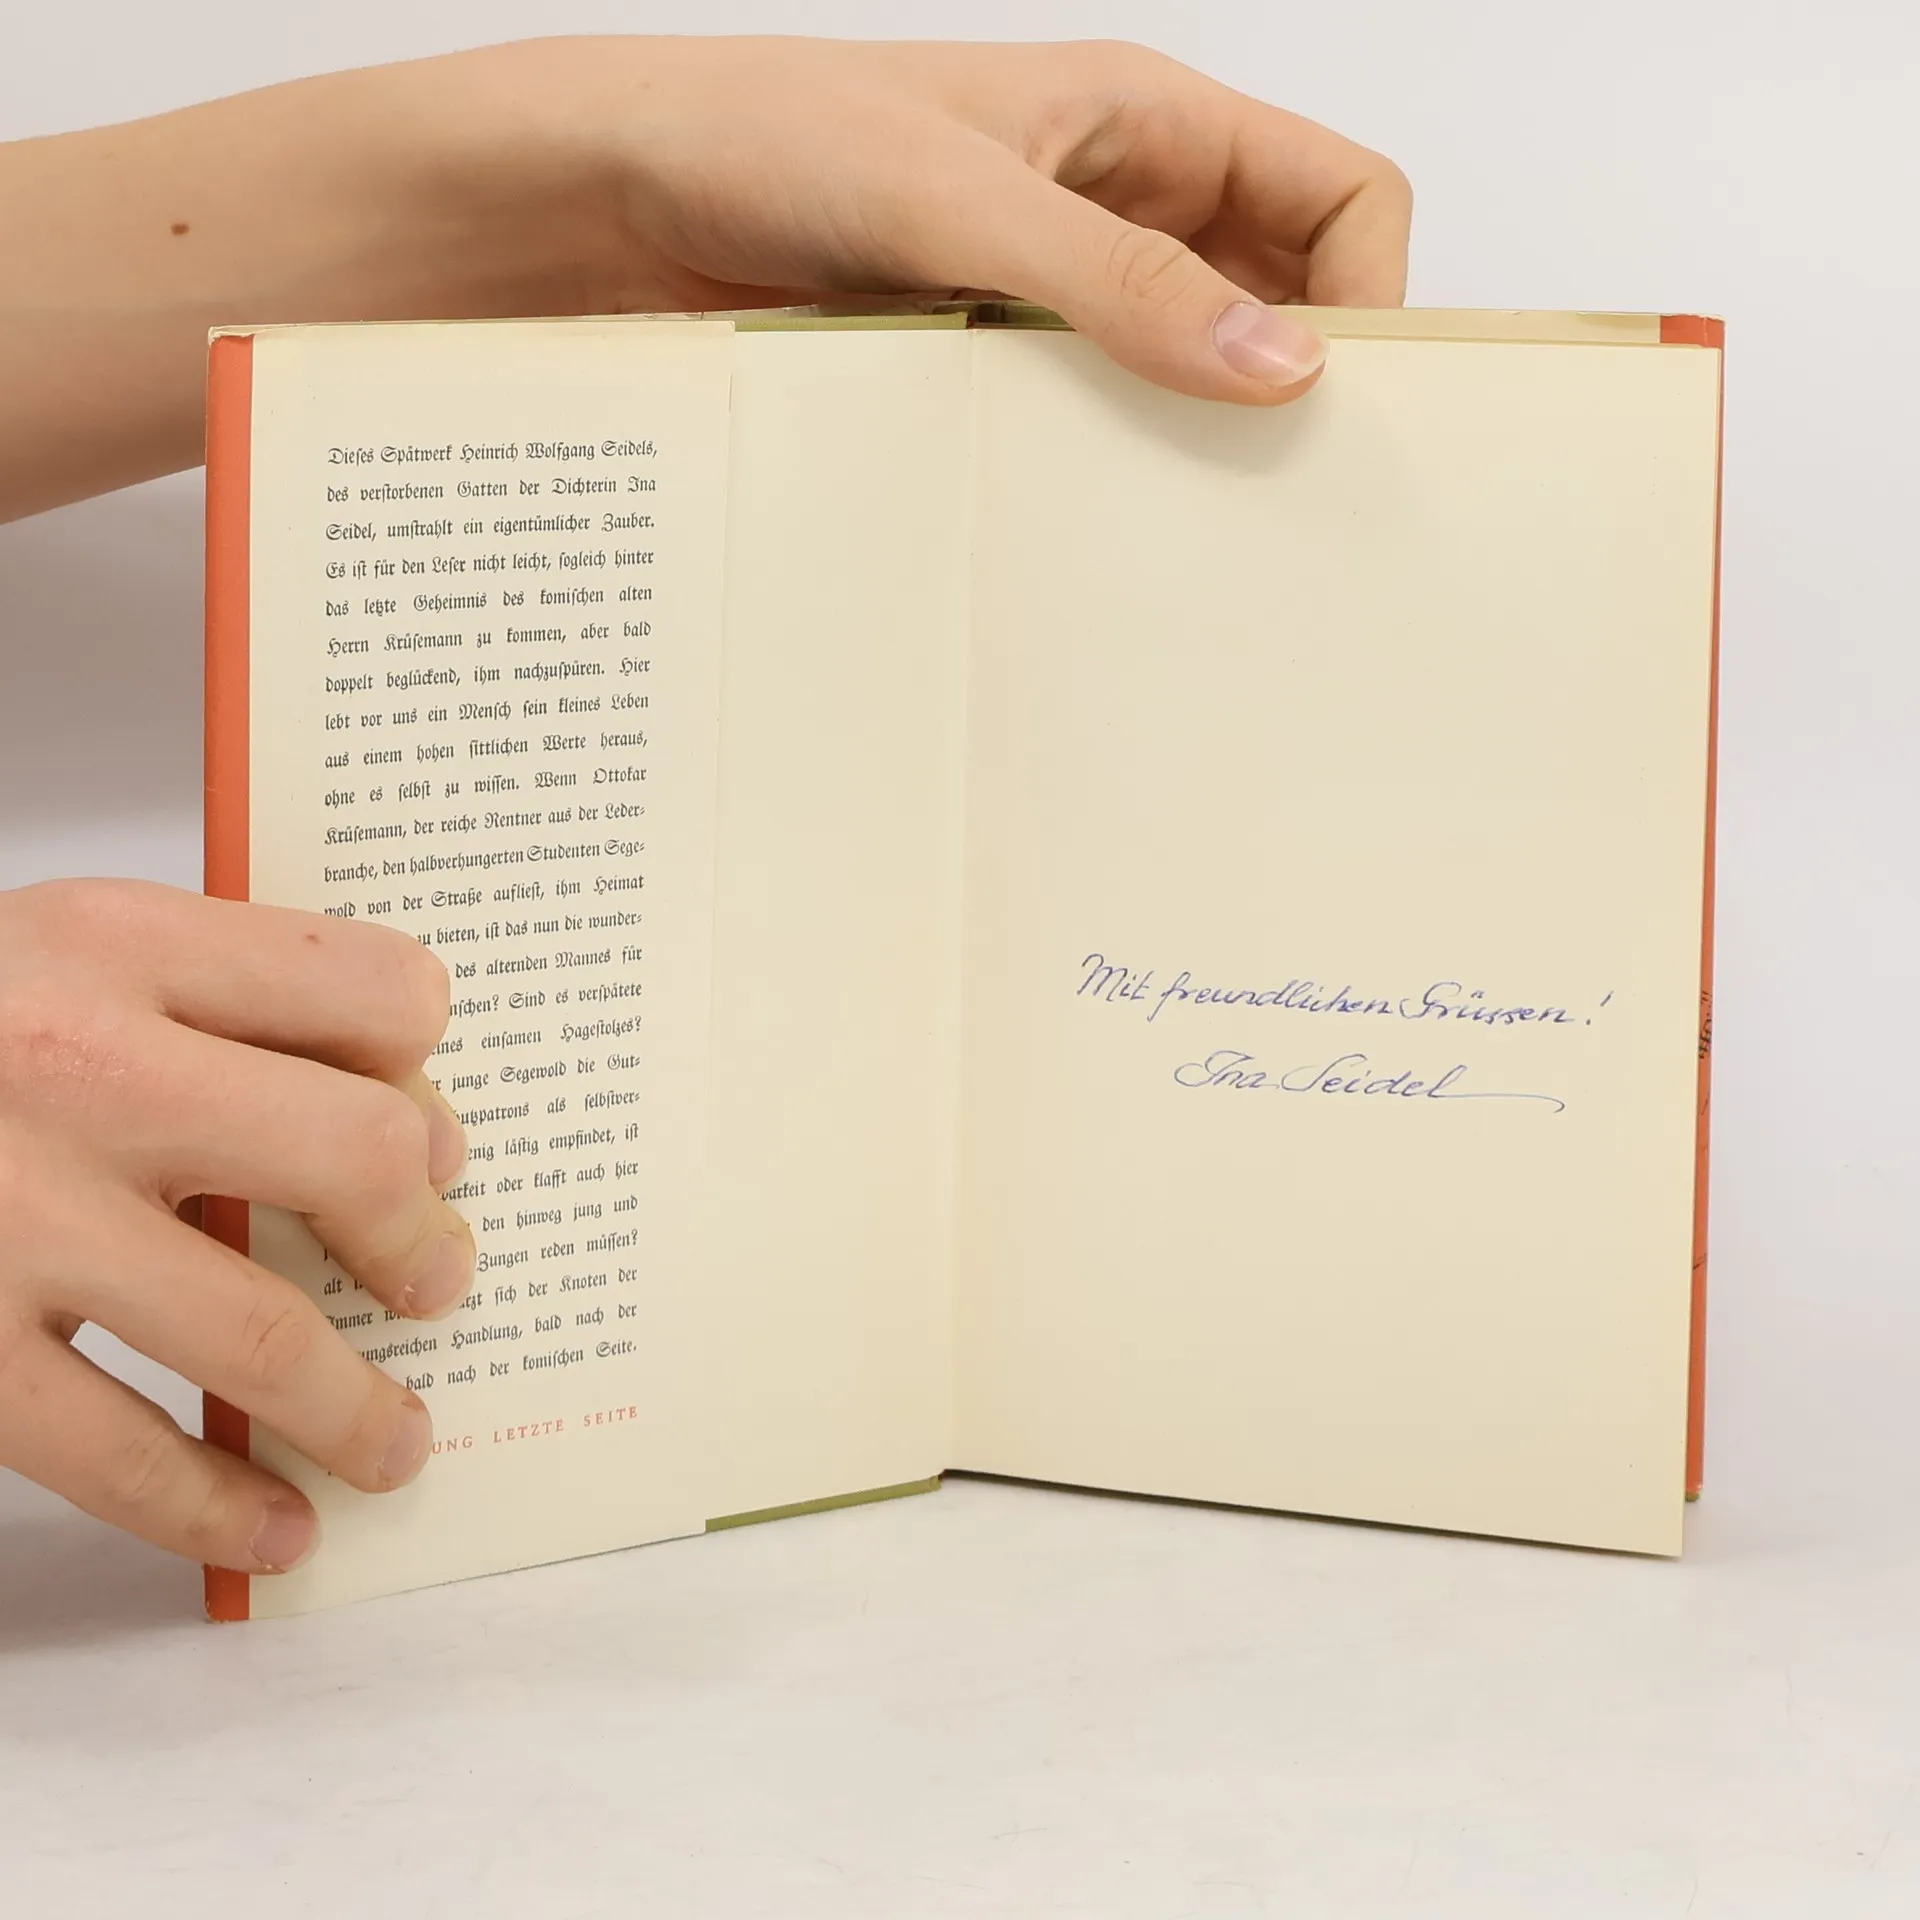 Dieses Spätwerk Heinrich Wolfgang Seidels,
des verstorbenen Gatten der Dichterin Ina
Seidel, umstrahlt ein eigentümlicher Zauber.
Es ist für den Leser nicht leicht, sogleich hinter
das letzte Geheimnis des komischen alten
Herrn Krüsemann zu kommen, aber bald
doppelt beglückend, ihm nachzuspüren. Hier
lebt vor uns ein Mensch sein kleines Leben
aus einem hohen sittlichen Werte heraus,
ohne es selbst zu wissen. Wenn Ottokar
Krüsemann, der reiche Rentner aus der Leder-
branche, den halbverhungerten Studenten Sege-
wold von der Straße aufliest, ihm Heimat
zu bieten, ist das nun die wunder-
des alternden Mannes für
nschen? Sind es verspätete
eines einsamen Hagestolzes?
junge Segewold die Gut-
utzpatrons als selbstver-
enig lästig empfindet, ist
barkeit oder klafft auch hier
den hinweg jung und
alt Zungen reden müssen?
Immer rzt sich der Knoten der
ungsreichen Handlung, bald nach der
bald nach der komischen Seite.
UNG LETZTE SEITE
Mit freundlichen Grüssen!
Ina Seidel